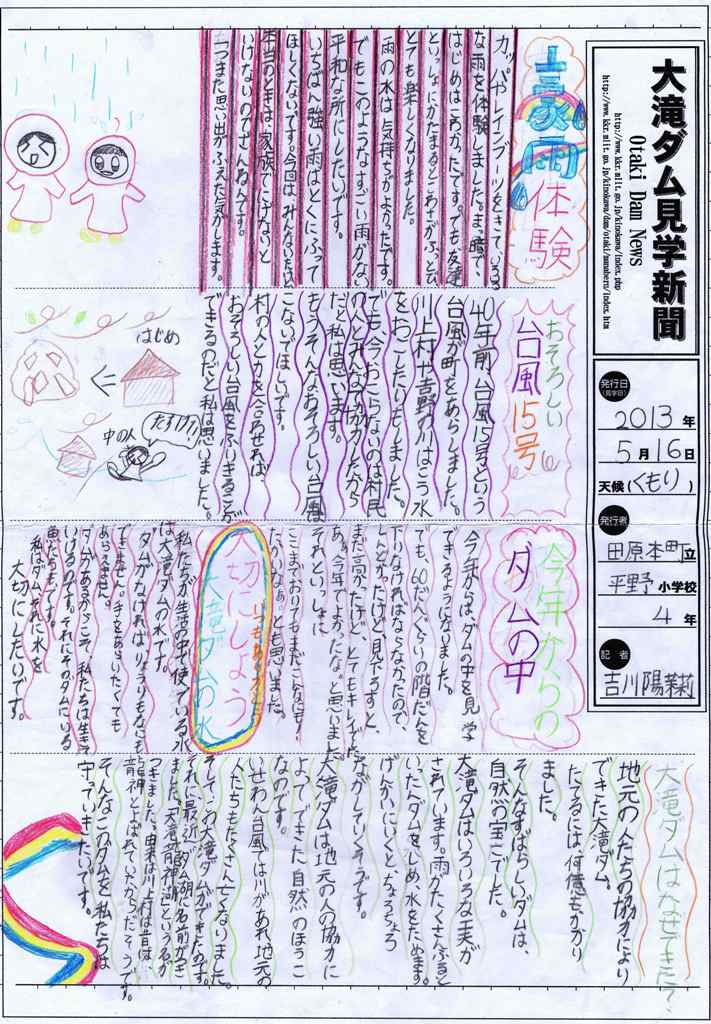 大滝ダム見学新聞
Otaki Dam News
http://www.kkr.mlit.go.jp/kinokawa/index.php
発行日
(見学日)
2013年
5月16日
天候(くもり)
発行者
田原本町立
平野小学校
4年
記者
吉川陽茉莉
豪雨体験
カッパやレインブーツをきて、いろいろ
な雨を体験しました。まっ暗で、
はじめはこわかったです。でも、友達
といっしょにかたまるとこわさがふっとび
とても楽しくなりました。
雨の水は気持ちがよかったです。
でもこのようなすごい雨がない
平和な所にしたいです。
いちばん強い雨はとくにふって
ほしくないです。今回はみんないたけど
本当のときは家族でにげないと
いけないのでざんねんです。
一つまた思い出がふえた気がします。
おそろしい
台風15号
40年前、台風15号という
台風が町をあらしました。
川上村や吉野の川はこう水
をおこしたりもしました。
でも、今おこらないのは村民
の人とみんなで協力したから
だと私は思います。
もうそんなおそろしい台風
こないでほしいです。
村の人と力を合わせれば、
おそろしい台風をふりきることが
できるのだと私は思いました。
はじめ
中の人
たすけて!!
今年からの
ダムの中
今年からは、ダムの中を見学
できるようになりました。
でも、60だんぐらいの階だんを
下りなければならなかったので、
しんどかったけど、見下ろすと、
まだ高かったけど、とてもキレイでした。
あぁ、今年でよかったな。と思いました。
それといっしょに
ここまでおりてもまだこんなにも
たかいなぁ。とも思いました。
大切にしよう
大滝ダムの水
私たちが生活の中で使っている水
は大滝ダムの水です。
ダムがなければりょうりもなにも
できません。手をあらいたくても
あらえません。
ダムがあるからこそ、私たちは生きて
いけるのです。それにそのダムにいる
魚たちもです。
私はダム、それに水を
大切にしたいです。
大滝ダムはなぜできた?
地元の人たちの協力により
できた大滝ダム。
たてるには、何億もかかり
ました。
そんなすばらしいダムは、
自然の宝こでした。
大滝ダムはいろいろな工夫が
されています。雨がたくさんふると
いったんダムをしめ、水をためます。
げんかいにいくと、ちょろちょろ
ながしていくそうです。
大滝ダムは地元の人の協力に
よってできた、自然のほうこ
なのです。
いせわん台風では川があれ地元の
人たちもたくさん亡くなりました。
そしてこの大滝ダムができたのです。
それに最近、ダム湖に名前がつき
ました。「大滝龍神湖」という名が
つきました。由来は川上村は昔は、
龍神とよばれていたからだそうです。
そんなこのダムを私たちは
守っていきたいです。